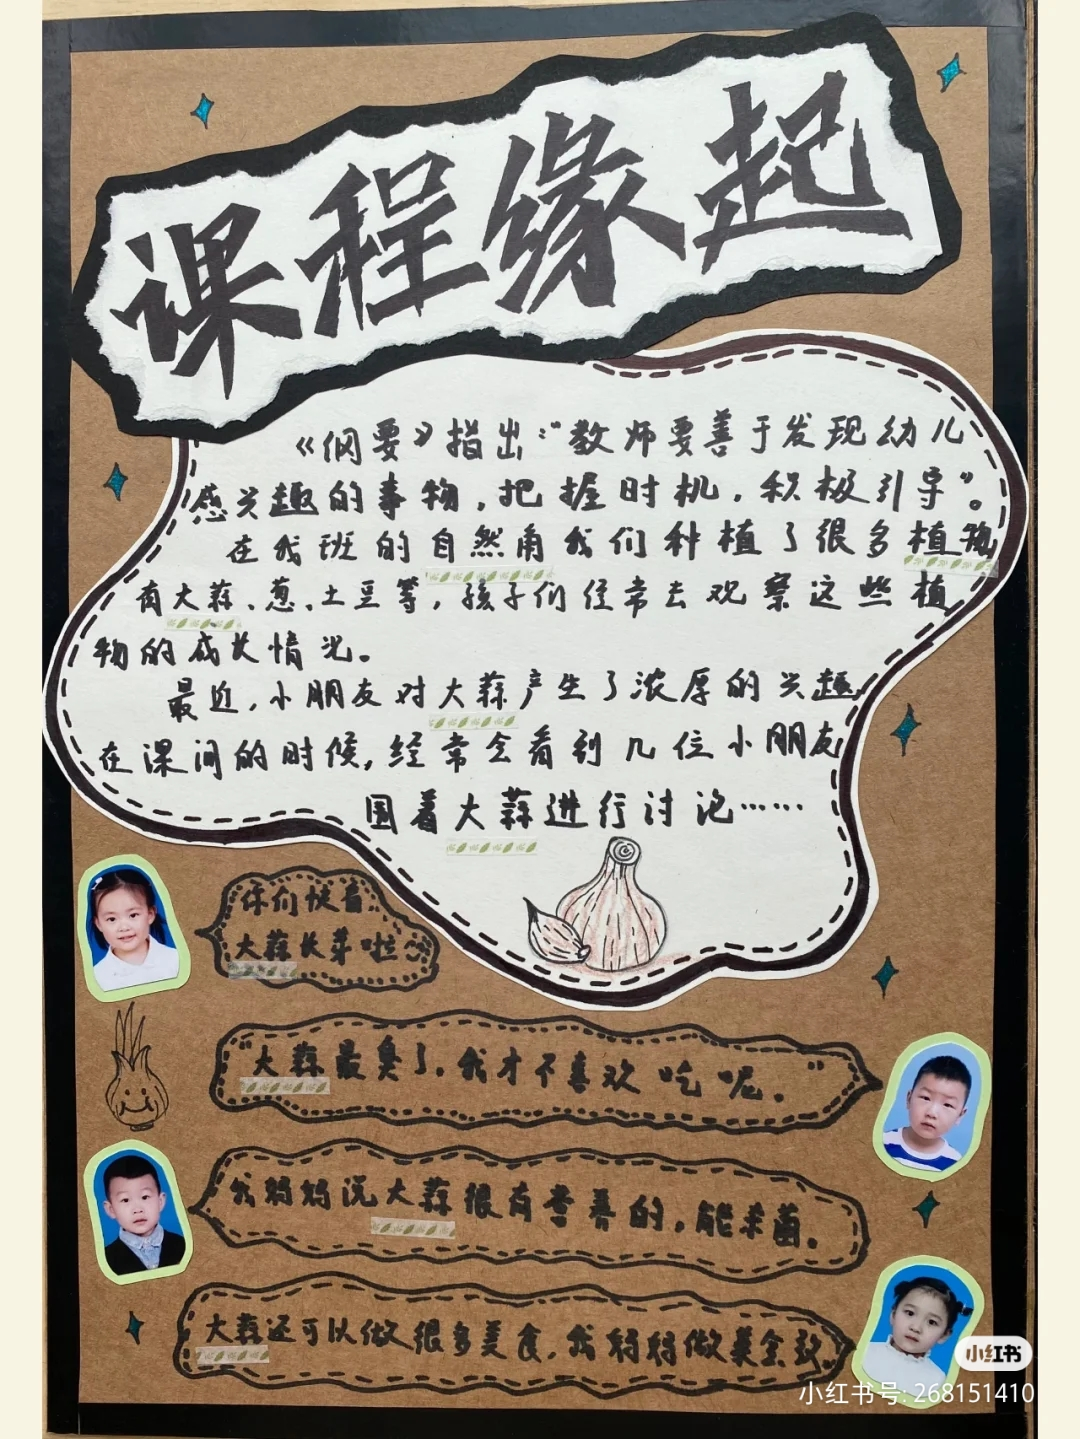 课程缘起
《纲要》指出:"教师要善于发现幼儿
感兴趣的事物,把握时机,积极引导"。
在我班的自然角我们种植了很多植物
有大蒜、葱、土豆等,孩子们经常去观察这些植
物的成长情况。
最近,小朋友对大蒜产生了浓厚的兴趣
在课间的时候,经常会看到几位小朋友
围着大蒜进行讨论……
你们快看
大蒜长芽啦
"大蒜最臭了,我才不喜欢吃呢。"
我妈妈说大蒜很有营养的,能杀菌。
大蒜还可以做很多美食,我妈妈做美食
小红书
小红书号: 268151410